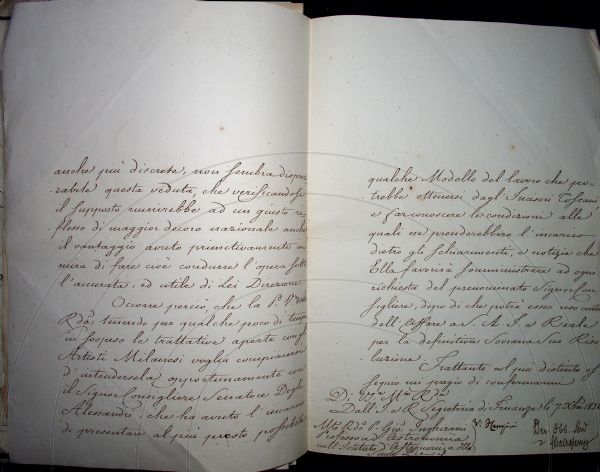 anche più discrete, non sembra disprez
-zabile questa veduta, che verificandosi
il supposto unirebbe ad un giusto ri
-flesso di maggior decoro nazionale anche
il vantaggio avuto primitivamente in
mira di fare cioè condurre l'opera sotto
l'accurata, ed utile di lei Direzione.
Occorre perciò, che la P. V. M.to
Rda, tenendo per qualche poco di tempo
in sospeso le trattative aperte con gli
Artisti Milanesi voglia compiacersi
d'intendersela opportunamente con
il Signor Consigliere Senatore Degli
Alessandri, che ha avuto l'incarico
di presentare al più presto possibile
qualche Modello del lavoro che po-
-trebbe ottenersi dagl'Incisori Toscani
e far conoscere le condizioni alle
quali ne prenderebbero l'incarico
dietro gli schiarimenti, e notizie che
Ella favorirà somministrare ad ogni
richiesta del prenominato Signor Con
sigliere, dopo di che potrà esser reso conto
dell'Affare a S. A. I. e Reale
per la definitiva Sovrana Sua Riso
-luzione.
Frattanto col più distinto os
sequio mi pregio di confermarmi
Di
Dall' I. e R. Segreteria di Finanze li 7
Mto Rdo P. Gio. Inghirami
Professore d'Astronomia
nell'Istituto d'Astronomia delle